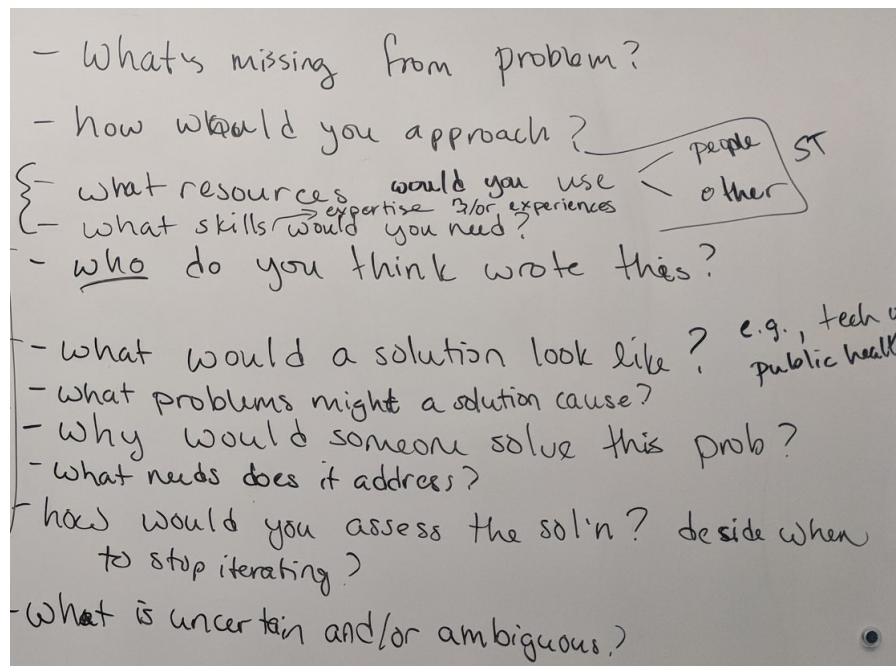 - What's missing from problem?
- how would you approach?
people
ST
- what resources would you use
other
expertise &/or experiences
- What skills would you need?
- who do you think wrote this?
- what would a solution look like?
e.g., tech
public
- what problems might a solution cause?
- why would someone solve this prob?
- what needs does it address?
- how would you assess the sol'n? deside when
to stop iterating?
- what is uncertain and/or ambiguous?